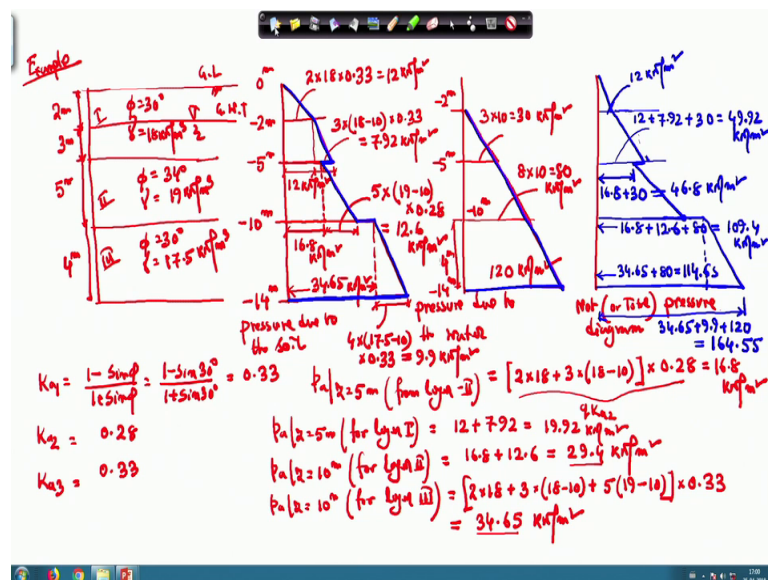 Example
G.L
2m
I
φ=30°
γ=18 kN/m³
G.W.T
3m
5m
II
φ=34°
γ=19 kN/m³
4m
III
φ=30°
γ=17.5 kN/m³
0m
2x18x0.33=12 kN/m²
-2m
3x(18-10)x0.33
= 7.92 kN/m²
-5m
12 kN/m²
5x(19-10)
x0.28
= 12.6
kN/m²
-10m
16.8
kN/m²
34.65 kN/m²
-14m
pressure due to
the soil
4x(17.5-10)
x0.33 = 9.9 kN/m²
-2m
3x10=30 kN/m²
-5m
8x10=80
kN/m²
-10m
4m
120 kN/m²
-14m
pressure due to
the water
12 kN/m²
12+7.92+30=49.92
kN/m²
16.8+30 = 46.8 kN/m²
16.8+12.6+80=109.4
kN/m²
34.65+80=114.65
Net (or Total) pressure
diagram
34.65+9.9+120
= 164.55
Ka1 = 1-sinφ/1+sinφ = 1-sin30°/1+sin30° = 0.33
Ka2 = 0.28
Ka3 = 0.33
pa|z=5m (from layer-II) = [2x18+3x(18-10)]x0.28 = 16.8
kN/m²
pa|z=5m (for layer I) = 12+7.92 = 19.92 kN/m²
pa|z=10m (for layer II) = 16.8+12.6 = 29.4 kN/m²
pa|z=10m (for layer III) = [2x18+3x(18-10)+5(19-10)]x0.33
= 34.65 kN/m²
17:00